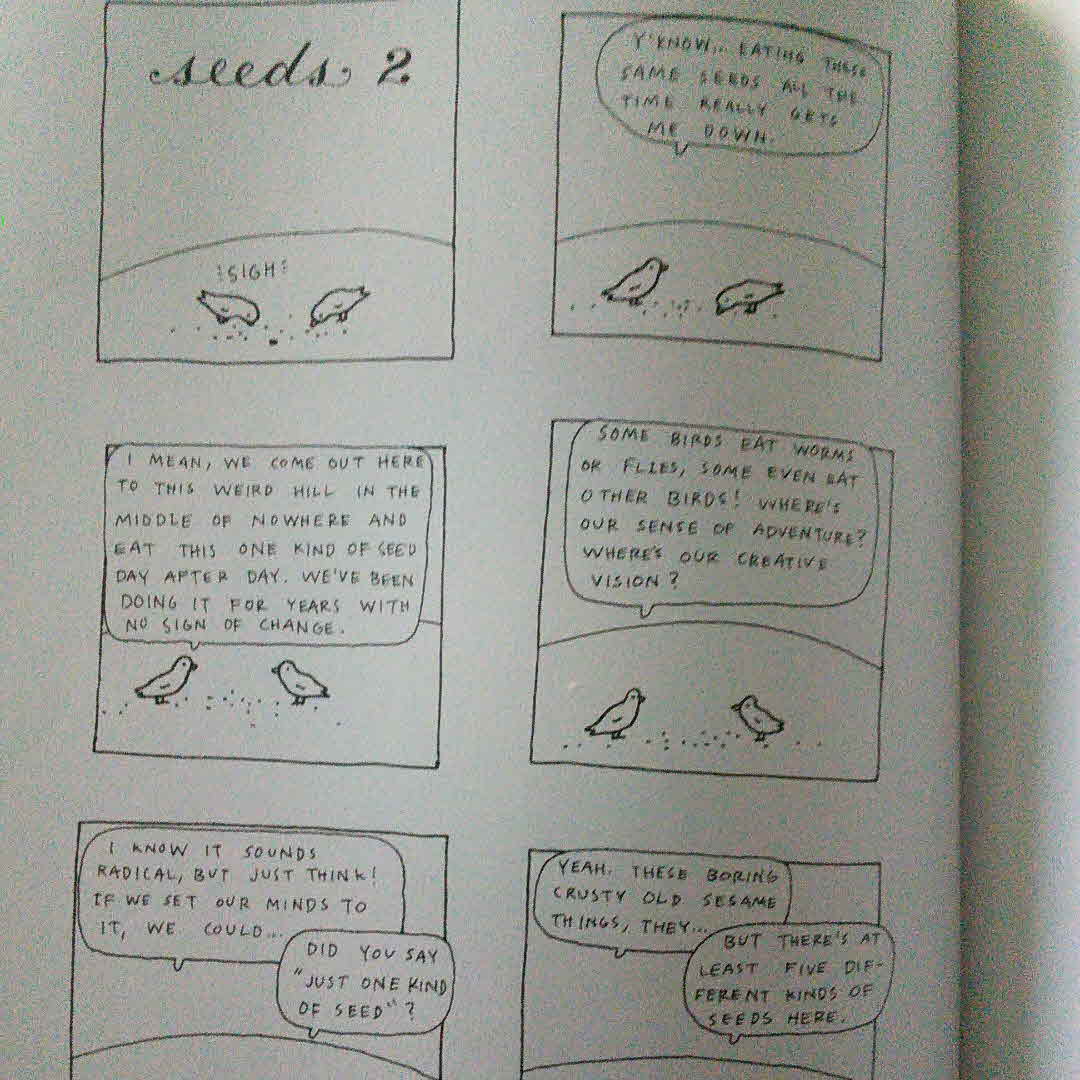 seeds 2
SIGH
Y'KNOW... EATING THESE
SAME SEEDS ALL THE
TIME REALLY GETS
ME DOWN.
I MEAN, WE COME OUT HERE
TO THIS WEIRD HILL IN THE
MIDDLE OF NOWHERE AND
EAT THIS ONE KIND OF SEED
DAY AFTER DAY. WE'VE BEEN
DOING IT FOR YEARS WITH
NO SIGN OF CHANGE.
SOME BIRDS EAT WORMS
OR FLIES, SOME EVEN EAT
OTHER BIRDS! WHERE'S
OUR SENSE OF ADVENTURE?
WHERE'S OUR CREATIVE
VISION?
I KNOW IT SOUNDS
RADICAL, BUT JUST THINK!
IF WE SET OUR MINDS TO
IT, WE COULD...
DID YOU SAY
"JUST ONE KIND
OF SEED"?
YEAH. THESE BORING
CRUSTY OLD SESAME
THINGS, THEY...
BUT THERE'S AT
LEAST FIVE DIF-
FERENT KINDS OF
SEEDS HERE.